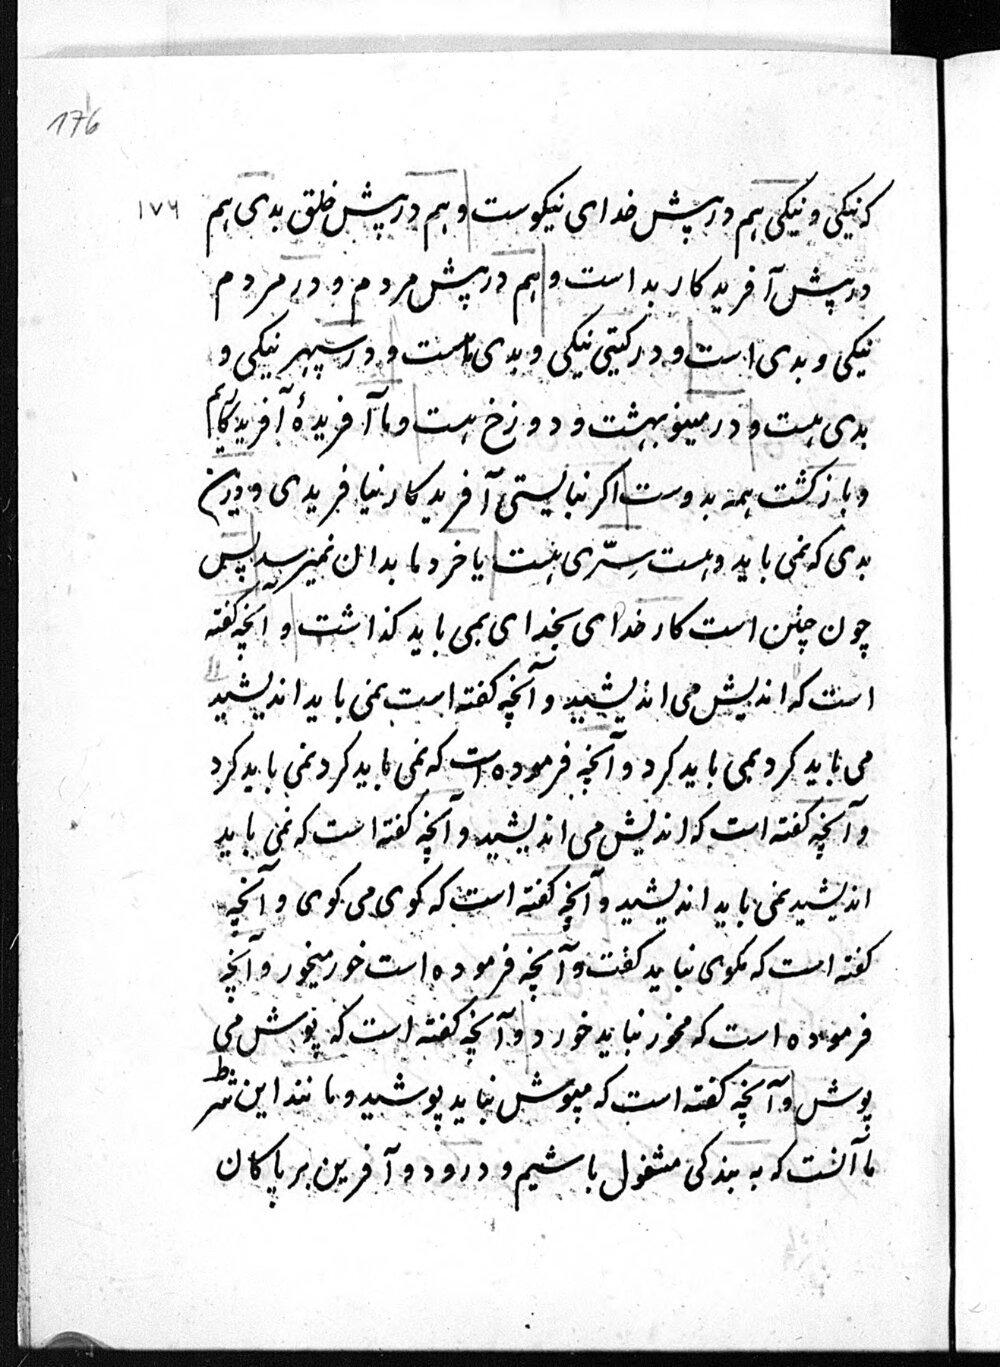 176
١٧٦
که نیکی و نیکی هم در پیش خدای نیکوست و هم در پیش خلق بدی هم
در پیش آفریدکار بد است و هم در پیش مردم و در مردم
نیکی و بدی است و در کیتی نیکی و بدی هست و در سپهر نیکی و
بدی هست و در مینو بهشت و دوزخ هست و ما آفریدهٔ آفریدکاریم
و بازکشت همه بدوست اکر نبایستی آفریدکار نیافریدی و درین
بدی که نمی باید و هست سِرّی هست یا خرد ما بدان نمیرسد پس
چون چنین است کار خدای بخدای بمی باید کذاشت و آنچه کفته
است که اندیش می اندیشید و آنچه کفته است نمی باید اندیشید
می باید کرد بمی باید کرد و آنچه فرموده است که نمی باید کرد نمی باید کرد
و آنچه کفته است که اندیش می اندیشید و آنچه کفته است که نمی باید
اندیشید نمی باید اندیشید و آنچه کفته است که کوی می کوی و آنچه
کفته است که مکوی نباید کفت و آنچه فرموده است خور میخور و آنچه
فرموده است که مخور نباید خورد و آنچه کفته است که پوش می
پوش و آنچه کفته است که مپوش نباید پوشید و مانند این شرط
ما آنست که به بندکی مشغول باشیم و درود و آفرین بر پاکان